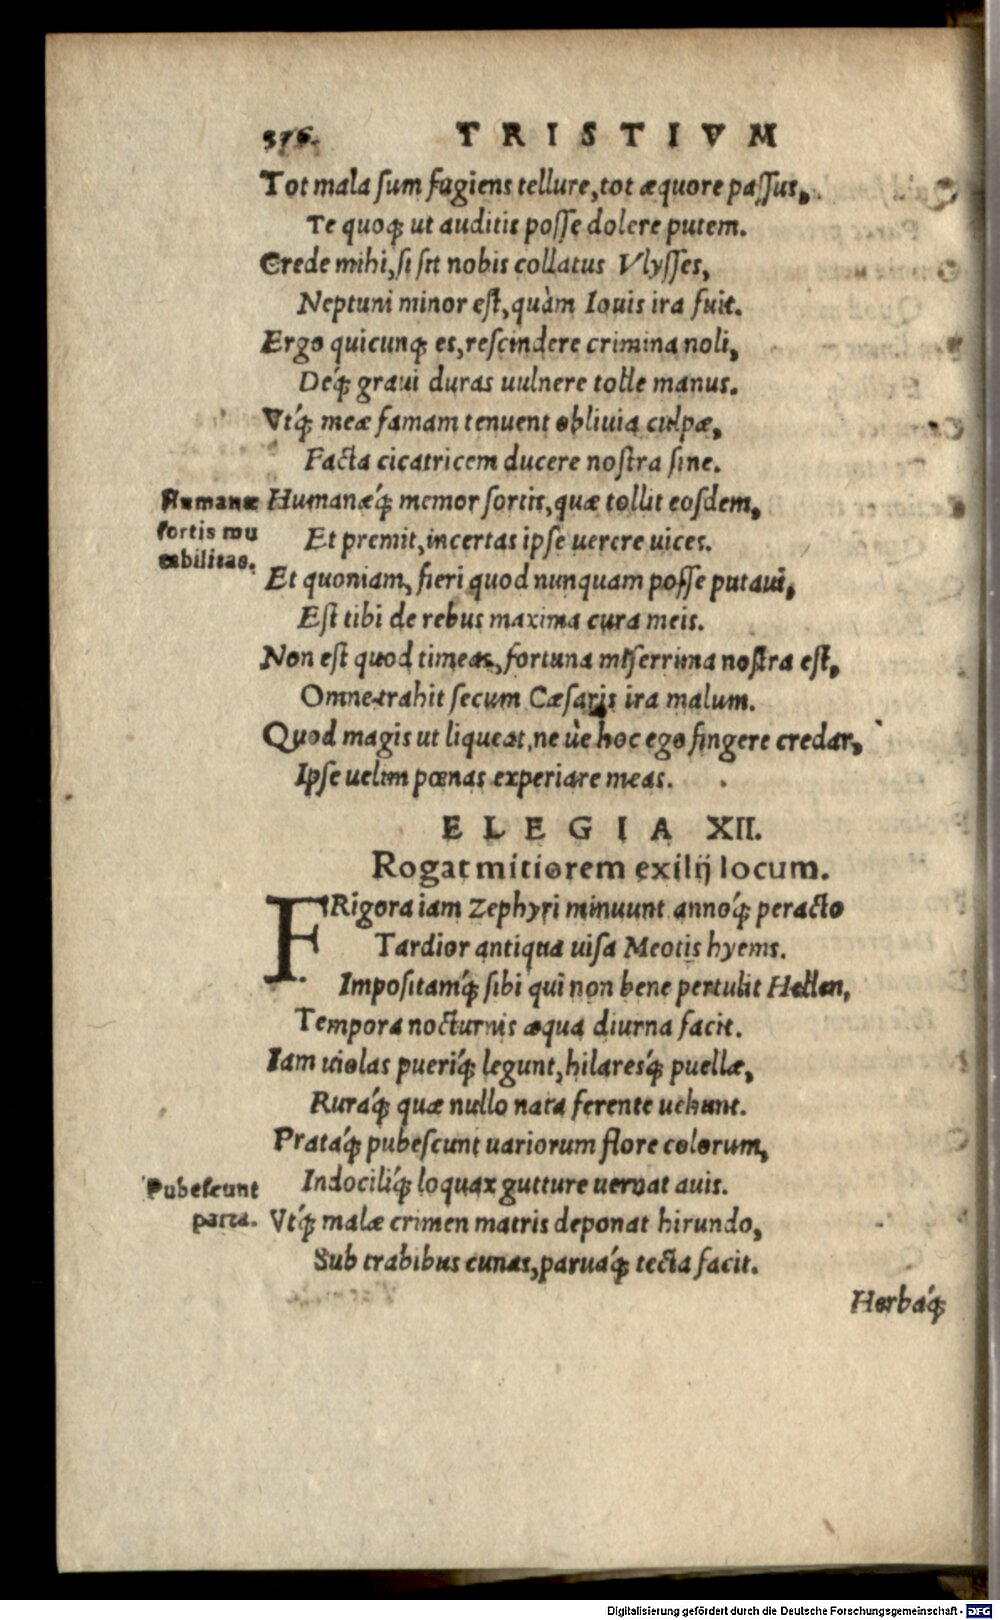 376. TRISTIVM
Tot mala sum fugiens tellure, tot æquore passus,
Te quoq; ut auditis posse dolere putem.
Crede mihi, si sit nobis collatus Vlysses,
Neptuni minor est, quàm Iouis ira fuit.
Ergo quicunq; es, rescindere crimina noli,
Deq́; graui duras uulnere tolle manus.
Vtq́; meæ famam tenuent obliuia culpæ,
Facta cicatricem ducere nostra sine.
Humanæ
sortis mu
tabilitas.
Humanæq́; memor sortis, quæ tollit eosdem,
Et premit, incertas ipse uerere uices.
Et quoniam, fieri quod nunquam posse putaui,
Est tibi de rebus maxima cura meis.
Non est quod timeas, fortuna miserrima nostra est,
Omne trahit secum Cæsaris ira malum.
Quod magis ut liqueat, ne ùe hoc ego fingere credar,
Ipse uelim pœnas experiare meas.
ELEGIA XII.
Rogat mitiorem exilij locum.
FRigora iam Zephyri minuunt annoq́; peracto
Tardior antiqua uisa Meotis hyems.
Impositamq́; sibi qui non bene pertulit Hellen,
Tempora nocturnis æqua diurna facit.
Iam uiolas pueriq́; legunt, hilaresq́; puellæ,
Ruraq́; quæ nullo nata ferente uehunt.
Prataq́; pubescunt uariorum flore colorum,
Indociliq́; loquax gutture uernat auis.
Pubescunt
parta.
Vtq́; malæ crimen matris deponat hirundo,
Sub trabibus cunas, paruaq́; tecta facit.
Herbaq́;
Digitalisierung gefördert durch die Deutsche Forschungsgemeinschaft - DFG